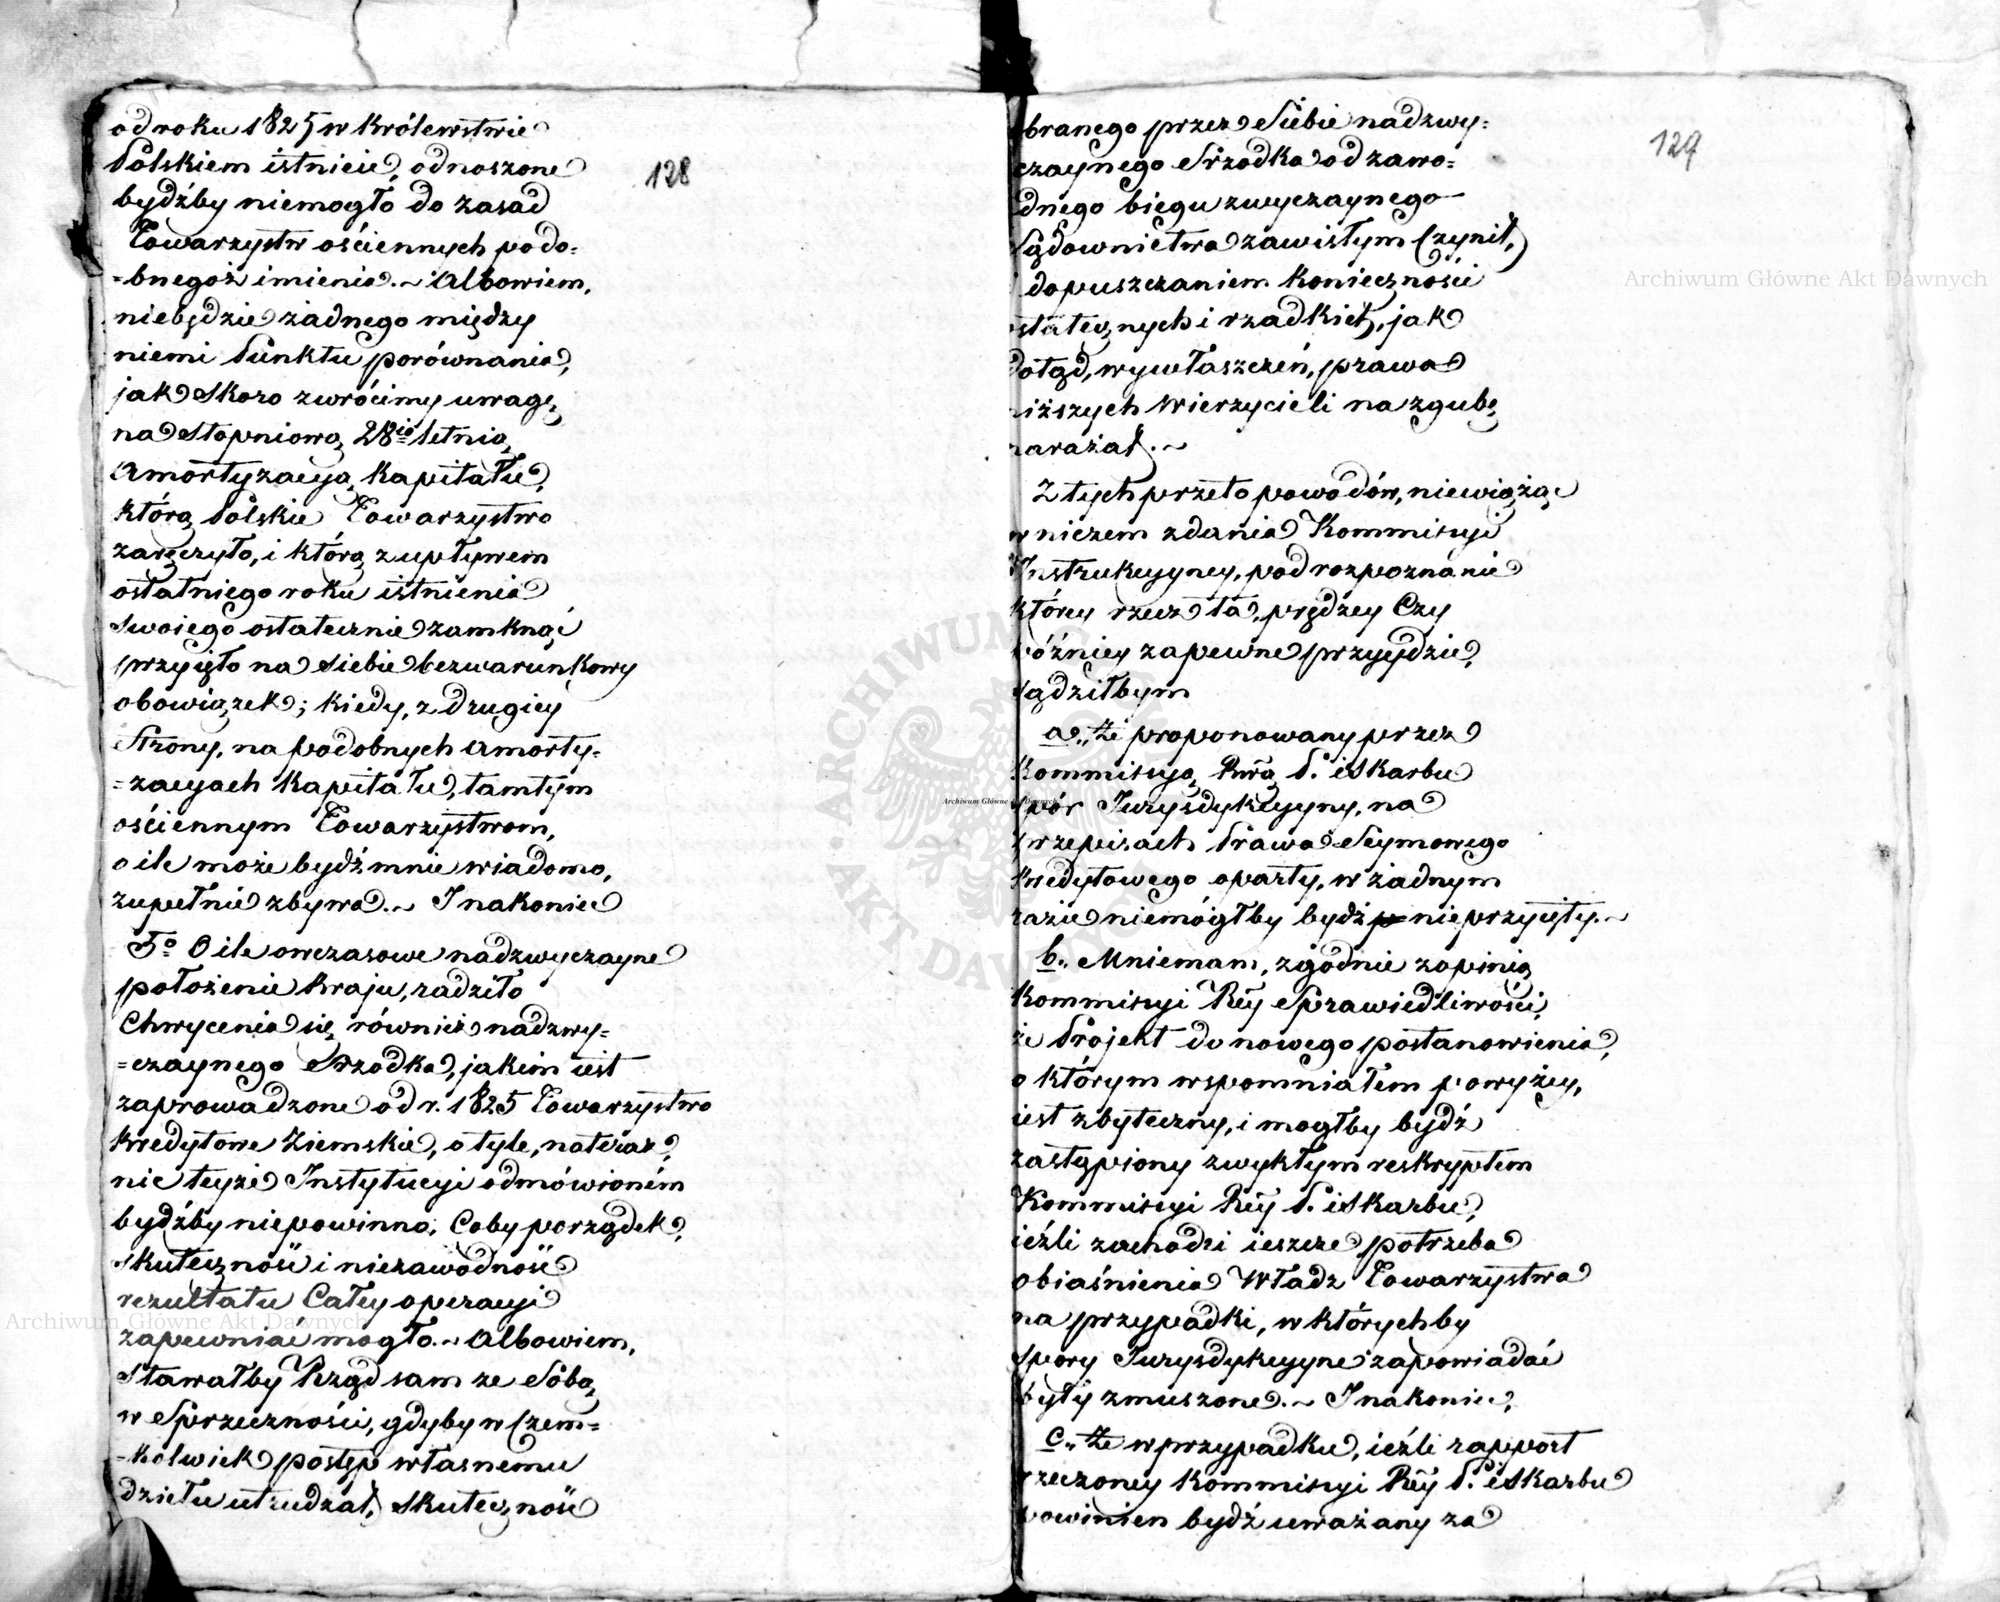 128
od roku 1825 w Królewstwie
Polskiem istnieie, odnoszone
bydźby niemogło do zasad
Towarzystw ościennych podo=
=bnegoż imienia.~ Albowiem,
niebędzie żadnego między
niemi Punktu porównania,
jak skoro zwrócimy uwagę,
na Stopniową 28io letnią
Amortyzacyą Kapitału,
którą Polskie Towarzystwo
zaręczyło, i którą z upływem
ostatniego roku istnienia
swoiego ostatecznie zamknąć
przyięło na siebie bezwarunkowy
obowiązek; kiedy, z drugiey
Strony, na podobnych amorty=
=zacyach Kapitału, tamtym
ościennym Towarzystwom,
o ile może bydź mnie wiadomo,
zupełnie zbywa.~ Inakoniec
5o O ile owczasowe nadzwyczayne
położenie Kraju, radziło
chwycenia się równie nadzwy=
=czaynego Srzodka, jakim iest
zaprowadzone od r. 1825 Towarzystwo
Kredytowe Ziemskie, o tyle, na teraz,
nic teyże Instytucyi odmówioném
bydźby niepowinno, Coby porządek,
skuteczność i niezawodność
rezultatu Całey operacyi
zapewniać mogło.~ Albowiem,
Stawałby Rząd sam ze Sobą,
w Sprzeczności, gdyby w Czem=
=kolwiek postęp własnemu
dziełu utrudzał, skuteczność
129
obranego przez Siebie nadzwy=
czaynego Srzodka od zawo=
dnego biegu zwyczaynego
Sądownictwa zawisłym Czynił,
i dopuszczaniem Konieczności
ostatecznych i rzadkich, jak
dotąd, wywłaszczeń, prawa
niższych Wierzycieli na zgubę
narażał.~
Z tych przeto powodów, niewiążąc
w niczem zdania Kommissyi
Instrukcyyney, pod rozpoznanie
którey rzecz ta, prędzey Czy
późniey zapewne przyydzie,
sądziłbym
a., Że proponowany przez
Kommissyą Rwą P. i Skarbu
spór Jurysdykcyyny, na
przepisach Prawa Seymowego
Kredytowego oparty, w żadnym
razie niemógłby bydź nieprzyięty.~
b., Mniemam, zgodnie z opinią
Kommissyi Réy Sprawiedliwości,
że Projekt do nowego postanowienia,
o którym wspomniałem powyżey,
iest zbyteczny, i mogłby bydź
zastąpiony zwykłym reskryptem
Kommissyi Réy P. i Skarbu,
ieźli zachodzi ieszcze potrzeba
obiaśnienia Władz Towarzystwa
na przypadki, w których by
spory Jurysdykcyyne zapowiadać
były zmuszone.~ Inakoniec,
c., Że w przypadku, ieźli rapport
rzeczoney Kommissyi Réy P. i Skarbu
powinien bydź uważany za
Archiwum Główne Akt Dawnych
Archiwum Główne Akt Dawnych
Archiwum Główne Akt Dawnych
ARCHIWUM
AKT DAWNYCH